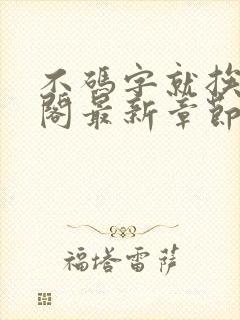 不碼字就挨
閣最新章節
福塔雷萨